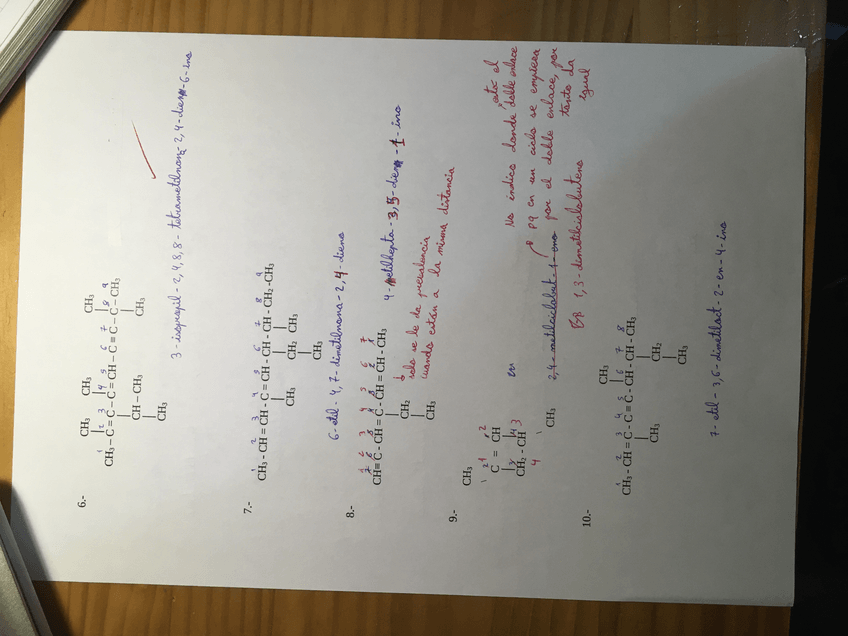 6.-
CH₃ CH₃ CH₃
1 2 3 4 5 6 7 8 9
CH₃ – C = C – C = CH – C ≡ C – C – CH₃
CH – CH₃ CH₃
CH₃
3-isopropil-2,4,8,8-tetrametilnona-2,4-dien-6-ino
7.-
1 2 3 4 5 6 7 8 9
CH₃ - CH = CH - C = CH - CH - CH - CH₂ - CH₃
CH₃ CH₂ CH₃
CH₃
6-etil-4,7-dimetilnona-2,4-dieno
8.-
1 2 3 4 5 6 7
CH≡ C - CH = C - CH = CH - CH₃
CH₂
CH₃
4-metilhepta-3,5-dien-1-ino
solo se le da prevalencia
cuando están a la misma distancia
9.-
CH₃
C = CH
CH₂ - CH
CH₃
en
2,4-metilciclobut-1-eno
No indica donde está el doble enlace
pq en un ciclo se empieza
por el doble enlace, por
tanto da
igual
1,3-dimetilciclobuteno
10.-
CH₃
1 2 3 4 5 6 7 8
CH₃ - CH = C - C ≡ C - CH - CH - CH₃
CH₃ CH₂
CH₃
7-etil-3,6-dimetiloct-2-en-4-ino